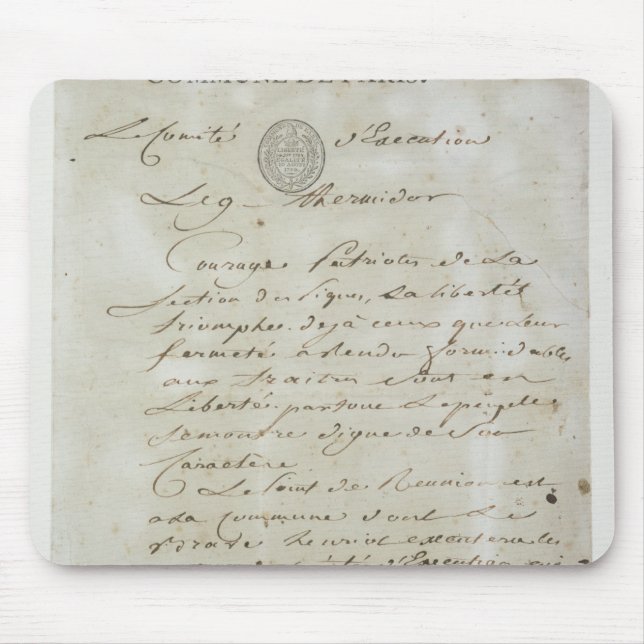 COMMUNE DE PARIS.
Le Comité d'Execution
LIBERTÉ
EGALITÉ
Le 9 thermidor
Courage Patriotes de La
Section des Piques, La liberté
triomphe. deja ceux que Leur
fermeté a rendu formidables
aux traitres sont en
Liberté. partout Le peuple
se montre digne de son
Caractère
Le point de Reunion est
a La Commune dont Le
brave henriot executera les
d'Execution qui